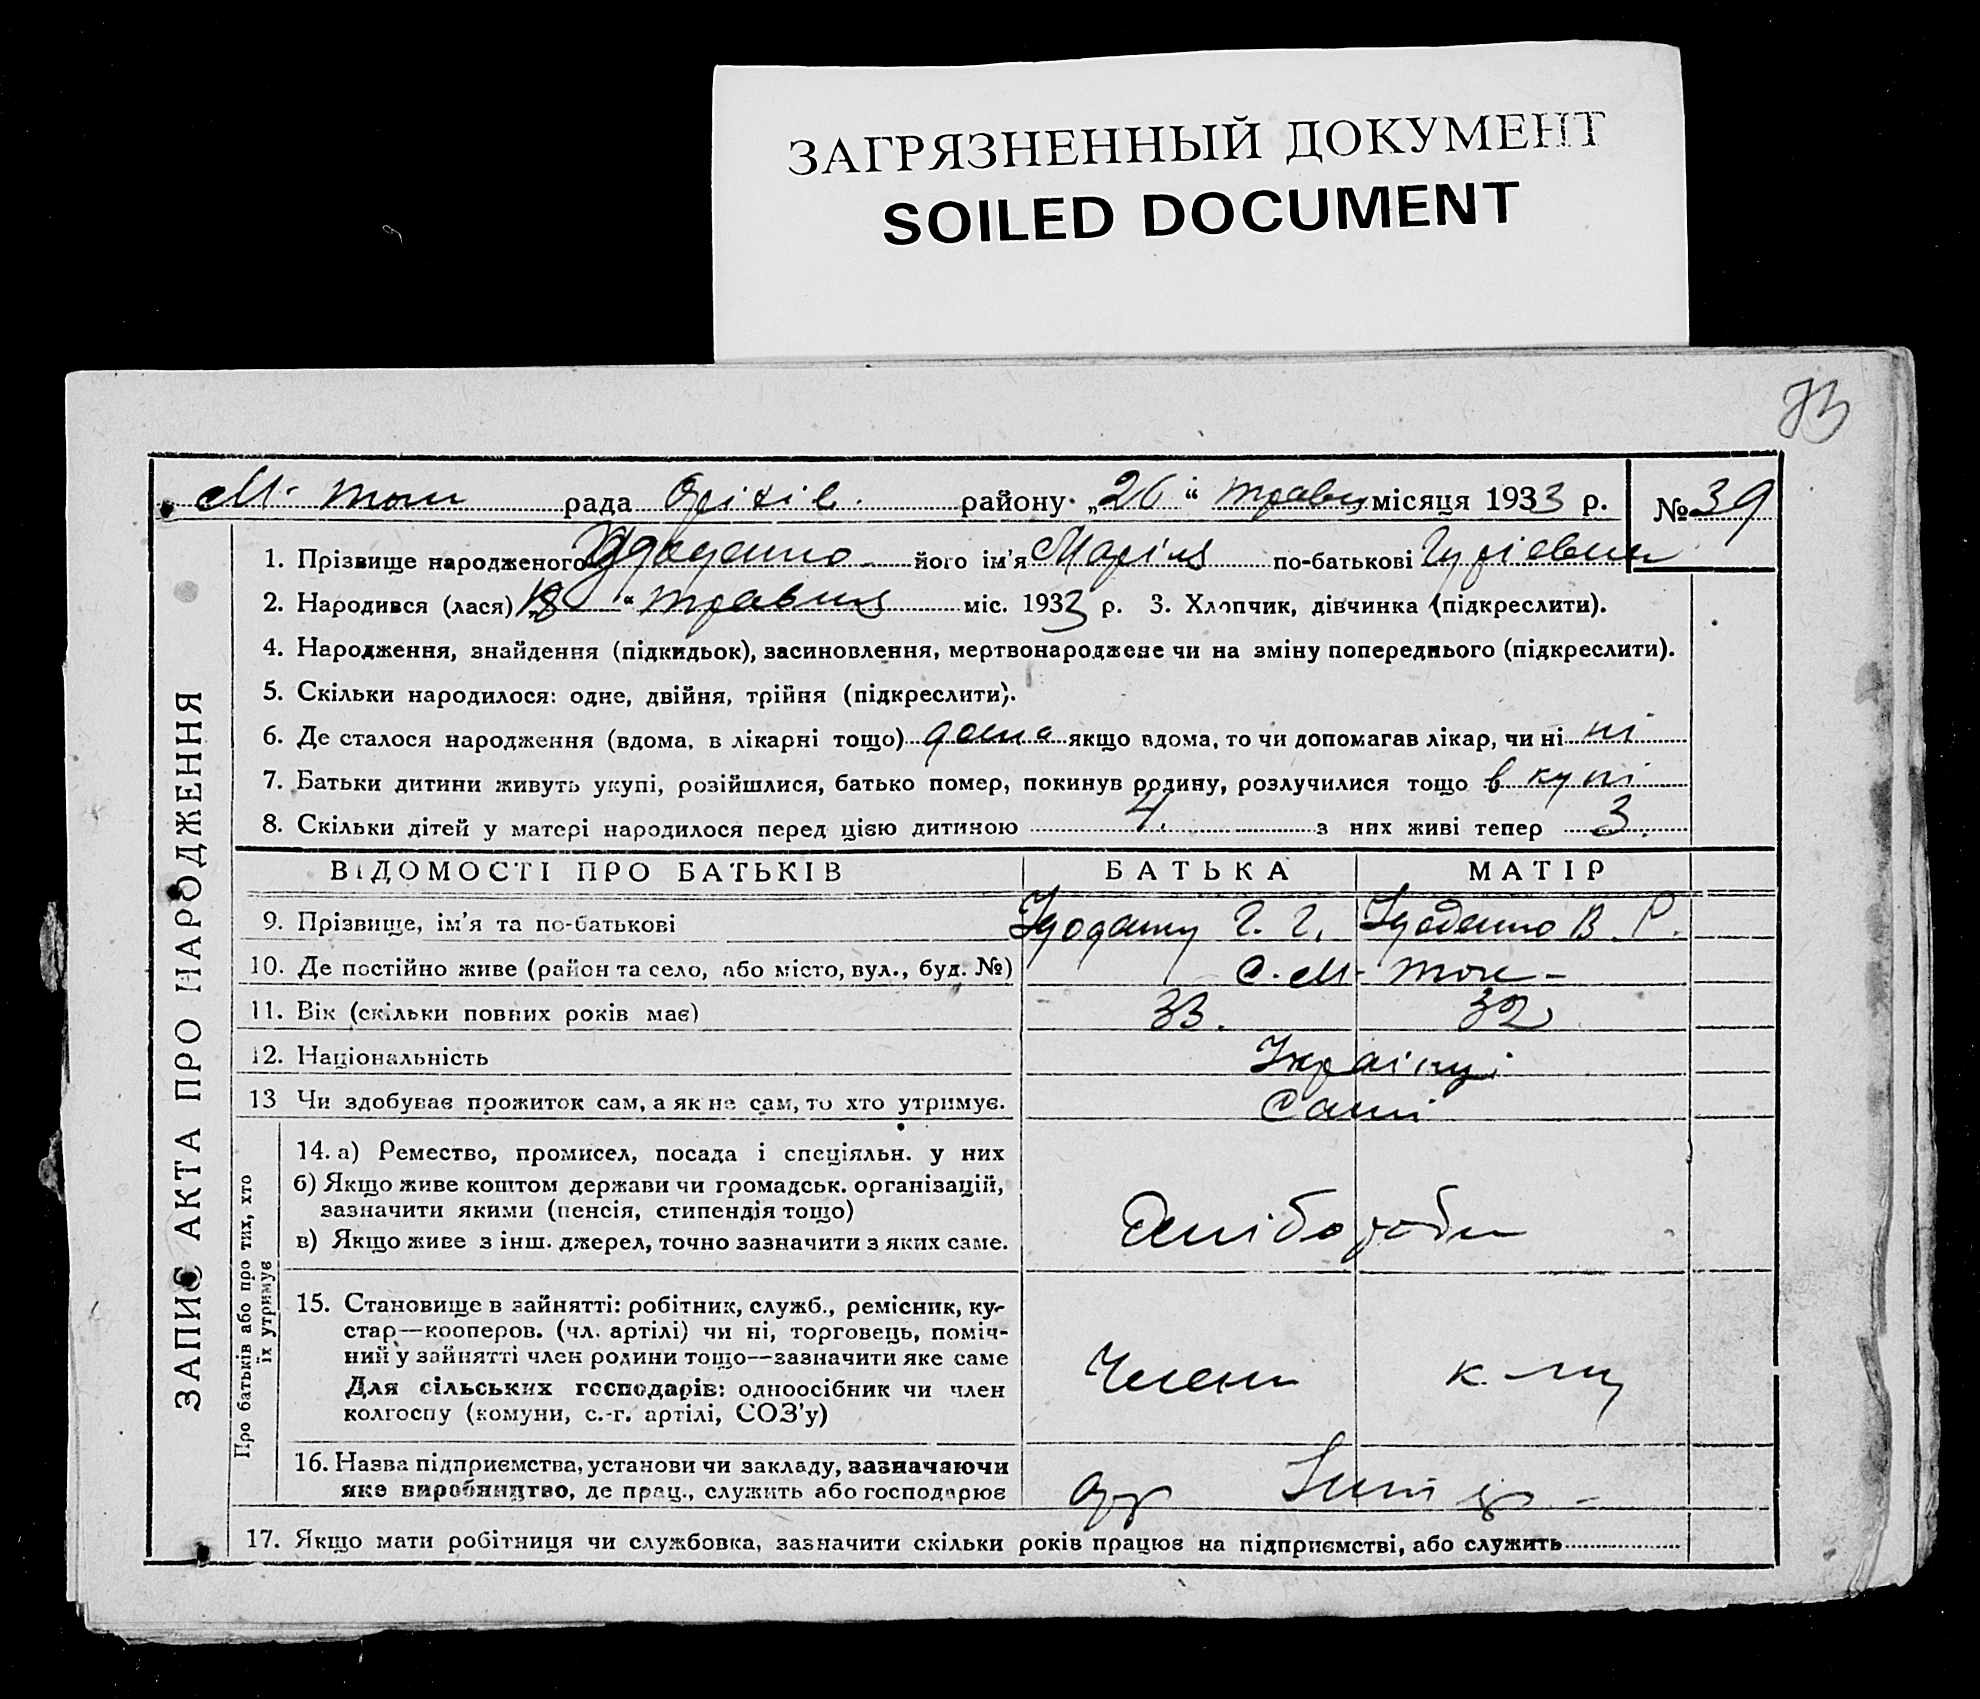 ЗАГРЯЗНЕННЫЙ ДОКУМЕНТ
SOILED DOCUMENT
М. рада Оріхів району „26“ травц місяця 1933 р. № 39
1. Прізвище народженого його ім'я Марія по-батькові Гуріевна
2. Народився (лася) „18“ травня міс. 1933 р. 3. Хлопчик, дівчинка (підкреслити).
4. Народження, знайдення (підкидьок), засиновлення, мертвонароджене чи на зміну попереднього (підкреслити).
5. Скільки народилося: одне, двійня, трійня (підкреслити).
6. Де сталося народження (вдома, в лікарні тощо) дома якщо вдома, то чи допомагав лікар, чи ні ні
7. Батьки дитини живуть укупі, розійшлися, батько помер, покинув родину, розлучилися тощо в купі
8. Скільки дітей у матері народилося перед цією дитиною 4. з них живі тепер 3.
ВІДОМОСТІ ПРО БАТЬКІВ БАТЬКА МАТІР
9. Прізвище, ім'я та по-батькові Г. Г. В. Р.
10. Де постійно живе (район та село, або місто, вул., буд. №) с. М.
11. Вік (скільки повних років має) 33. 32
12. Національність Українці
13 Чи здобуває прожиток сам, а як не сам, то хто утримує. Самі
Про батьків або про тих, хто їх утримує
14. а) Ремество, промисел, посада і спеціяльн. у них
б) Якщо живе коштом держави чи громадськ. організацій,
зазначити якими (пенсія, стипендія тощо)
в) Якщо живе з інш. джерел, точно зазначити з яких саме.
15. Становище в зайнятті: робітник, служб., ремісник, ку-
стар—кооперов. (чл. артілі) чи ні, торговець, поміч-
ний у зайнятті член родини тощо—зазначити яке саме
Для сільських господарів: одноосібник чи член
колгоспу (комуни, с.-г. артілі, СОЗ'у)
Члени
16. Назва підприємства, установи чи закладу, зазначаючи
яке виробництво, де прац., служить або господарює
17. Якщо мати робітниця чи службовка, зазначити скільки років працює на підприємстві, або служить
ЗАПИС АКТА ПРО НАРОДЖЕННЯ